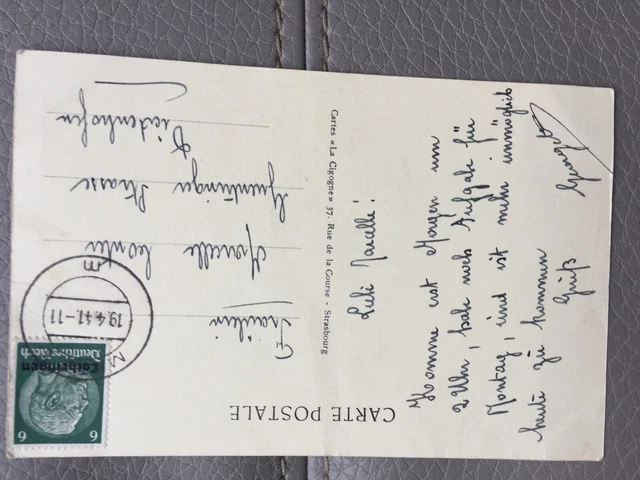 CARTE POSTALE
Liebe Marcelle!
Komme erst Morgen um
2 Uhr, hab noch Aufgabe für
Montag, und ist mehr unmöglich
heute zu kommen
Gruß
Cartes « La Cigogne » 37, Rue de la Course - Strasbourg
6 6
Deutsches Reich
Lothringen
19.4.41.-11
Fräulein
Marcelle
Straße
Diedenhofen